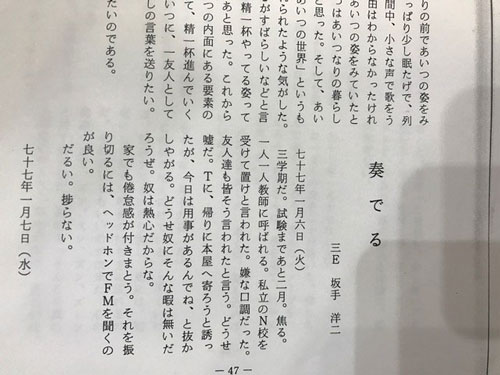 りの前であいつの姿をみ
っぱり少し眠たげで、列
間中、小さな声で歌をう
由はわからなかったけれ
あいつの姿をみていたと
つはあいつなりの暮らし
と思った。そして、あい
あいつの世界」というも
られたような気がした。
がすばらしいなどと言
精一杯やってる姿って
あと思った。これから
つの内面にある要素の
て、精一杯進んでいく
いつに、一友人として
しの言葉を送りたい。
たいのである。
奏でる
三E 坂手 洋二
七十七年一月六日（火）
三学期だ。試験まであと二月。焦る。
一人一人教師に呼ばれる。私立のN校を
受けて置けと言われた。嫌な口調だった。
友人達も皆そう言われたと言う。どうせ
嘘だ。Tに、帰りに本屋へ寄ろうと誘っ
たが、今日は用事があるんでね、と抜か
しやがる。どうせ奴にそんな暇は無いだ
ろうぜ。奴は熱心だからな。
家でも倦怠感が付きまとう。それを振
り切るには、ヘッドホンでFMを聞くの
が良い。
だるい。捗らない。
七十七年一月七日（水）
— 47 —